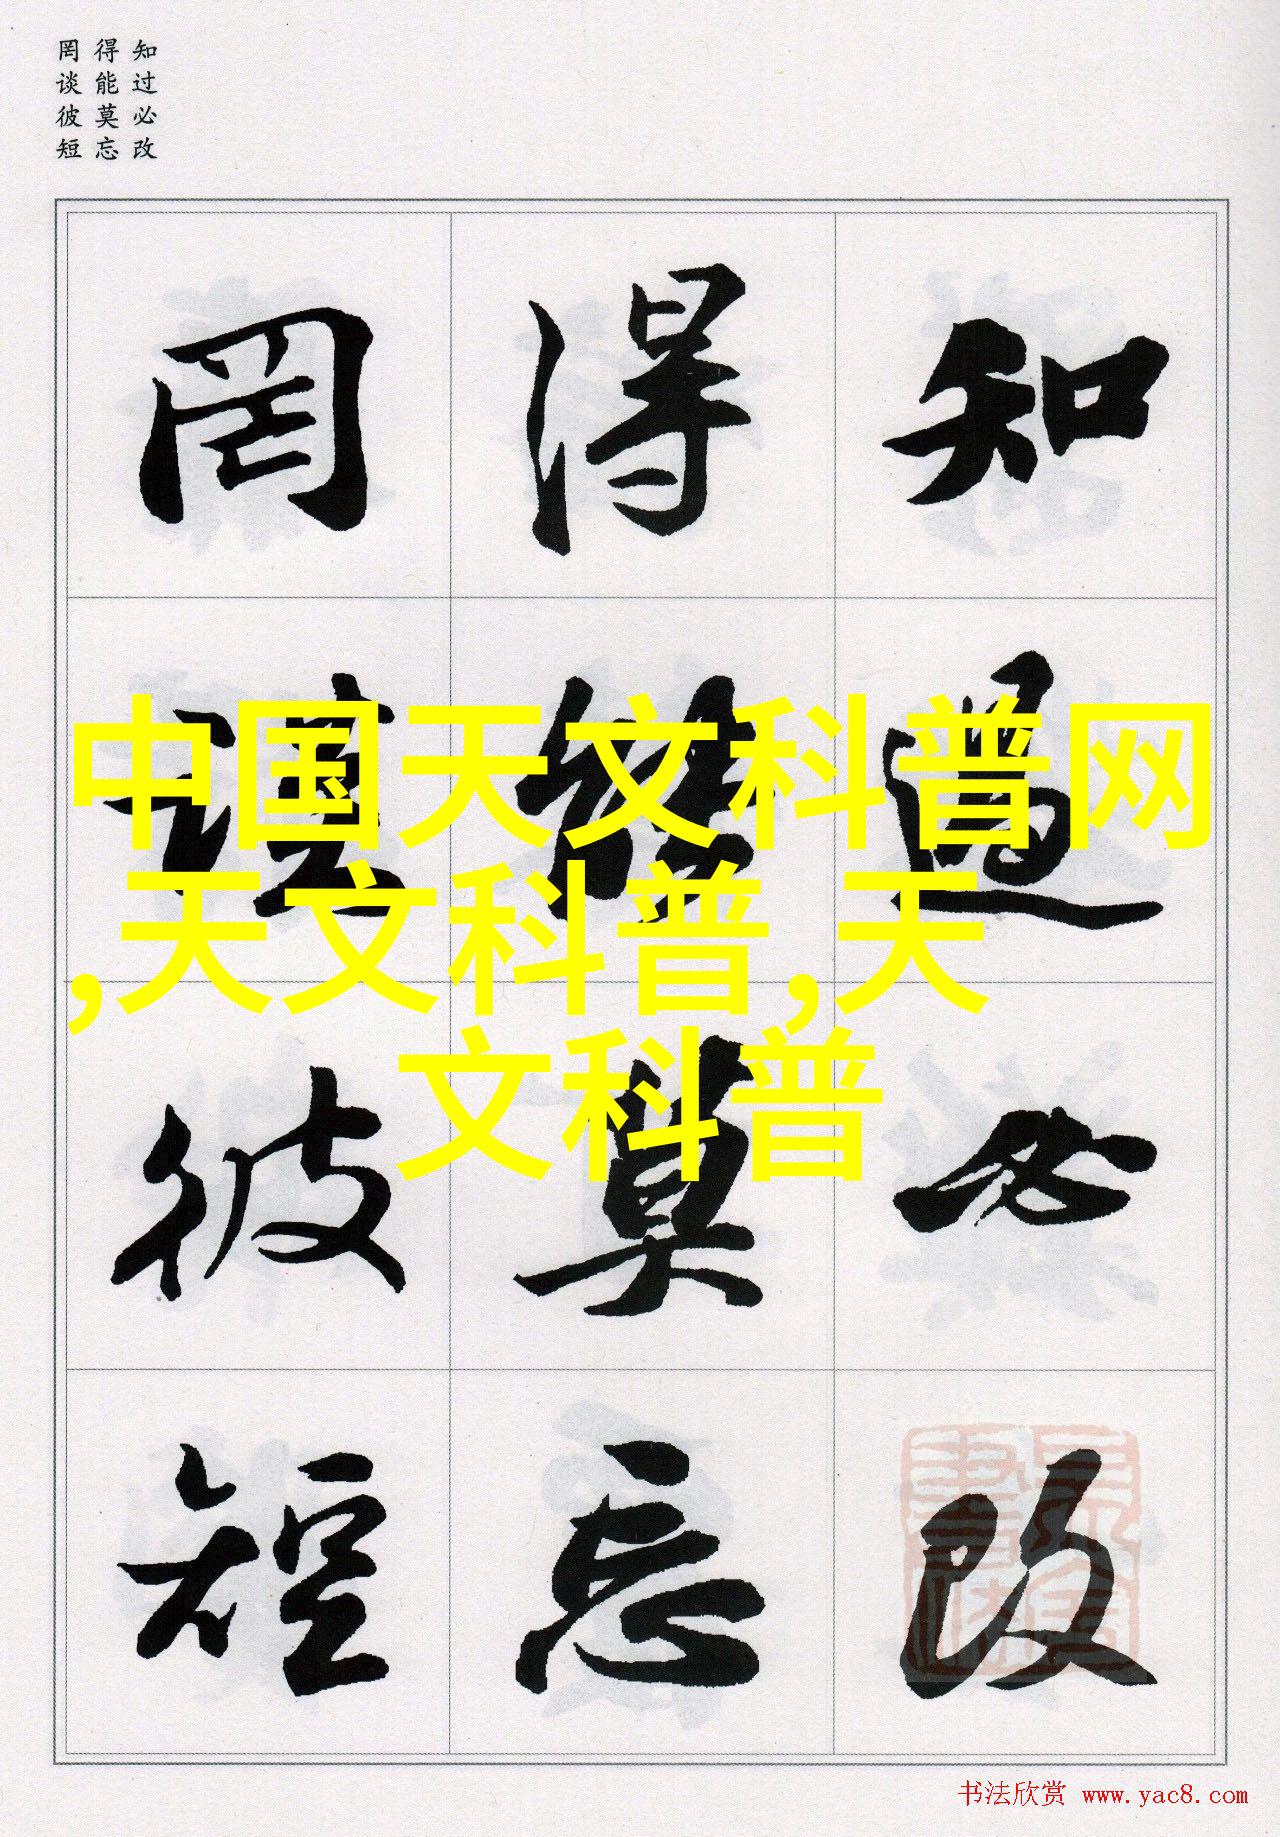 知过必改
得能莫忘
罔谈彼短
知過必改
得能莫忘
罔談彼短
中国天文科普网
,天文科普,天
文科普
书法欣赏 www.yac8.com